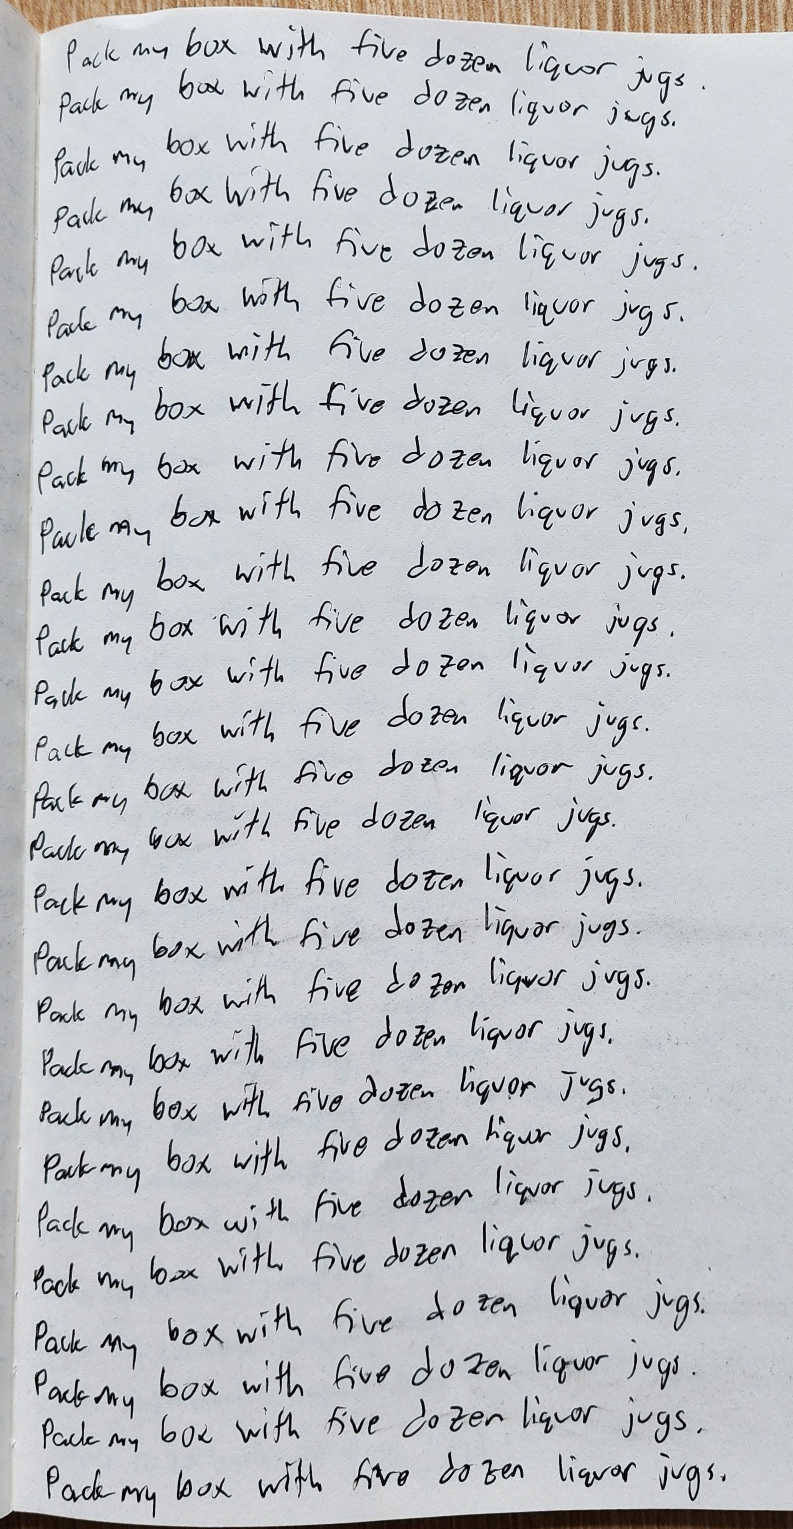 Pack my box with five dozen liquor jugs.
Pack my box with five dozen liquor jugs.
Pack my box with five dozen liquor jugs.
Pack my box with five dozen liquor jugs.
Pack my box with five dozen liquor jugs.
Pack my box with five dozen liquor jugs.
Pack my box with five dozen liquor jugs.
Pack my box with five dozen liquor jugs.
Pack my box with five dozen liquor jugs.
Pack my box with five dozen liquor jugs.
Pack my box with five dozen liquor jugs.
Pack my box with five dozen liquor jugs.
Pack my box with five dozen liquor jugs.
Pack my box with five dozen liquor jugs.
Pack my box with five dozen liquor jugs.
Pack my box with five dozen liquor jugs.
Pack my box with five dozen liquor jugs.
Pack my box with five dozen liquor jugs.
Pack my box with five dozen liquor jugs.
Pack my box with five dozen liquor jugs.
Pack my box with five dozen liquor jugs.
Pack my box with five dozen liquor jugs.
Pack my box with five dozen liquor jugs.
Pack my box with five dozen liquor jugs.
Pack my box with five dozen liquor jugs.
Pack my box with five dozen liquor jugs.
Pack my box with five dozen liquor jugs.
Pack my box with five dozen liquor jugs.